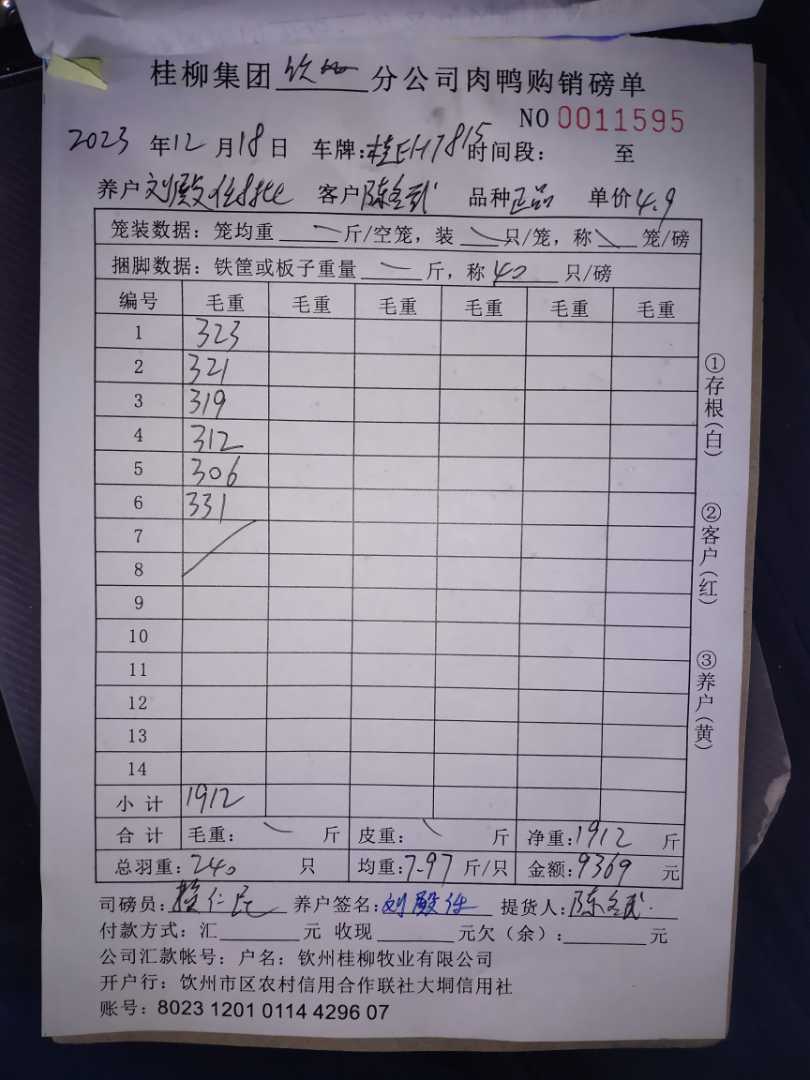 桂柳集团 钦州 分公司肉鸭购销磅单
NO 0011595
2023 年12月18日 车牌: 7815 时间段: 至
养户 刘殿 客户 陈 品种 正品 单价 4.9
笼装数据: 笼均重 斤/空笼, 装 只/笼, 称 笼/磅
捆脚数据: 铁筐或板子重量 一 斤, 称 40 只/磅
编号 毛重 毛重 毛重 毛重 毛重 毛重
1 323
2 321
3 319
4 312
5 306
6 331
7
8
9
10
11
12
13
14
小计 1912
合计 毛重: 斤 皮重: 斤 净重: 1912 斤
总羽重: 240 只 均重: 7.97 斤/只 金额: 9369 元
司磅员: 养户签名: 刘殿 提货人: 陈
付款方式: 汇 元 收现 元欠(余): 元
公司汇款帐号: 户名: 钦州桂柳牧业有限公司
开户行: 钦州市区农村信用合作联社大垌信用社
账号: 8023 1201 0114 4296 07
①存根(白)
②客户(红)
③养户(黄)